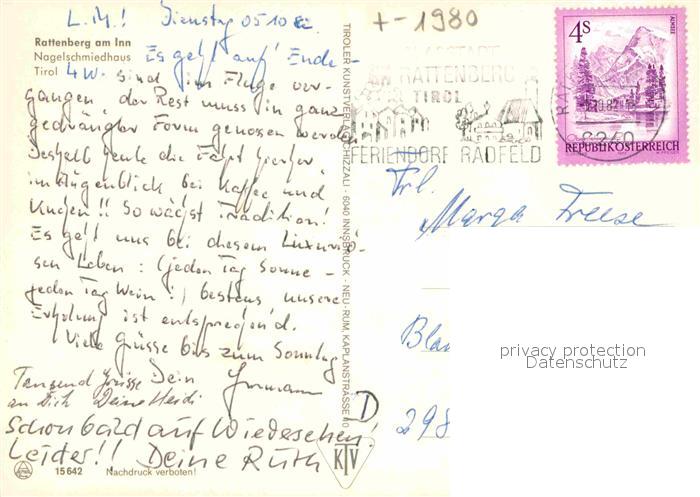 L.M.! Dienstag 05 10 82
Rattenberg am Inn
Nagelschmiedhaus
Tirol
Es geht auf' Ende -
4 W. sind im Fluge ver-
gangen, der Rest muss in ganz
gedrängter Form genossen werden
Deshalb heute die Fahrt hierher,
im Augenblick bei Kaffee und
Kuchen!! So wächst Tradition!
Es geht uns bei diesem Luxuriö-
sen Leben: (jeden Tag Sonne -
jeden Tag Wein!) bestens unsere
Erholung ist entsprechend.
Viele Grüsse bis zum Sonntag
Tausend Grüsse Dein
an Dich Deine Heidi
Schon bald auf Wiedersehen!
Leider!! Deine Ruth
15 642 Nachdruck verboten!
TIROLER KUNSTVERLAG CHIZZALI · 6040 INNSBRUCK - NEU-RUM, KAPLANSTRASSE
KTV
D
+-1980
GLASSTADT
RATTENBERG
TIROL
FERIENDORF RADFELD
4S
ALMSEE
REPUBLIK ÖSTERREICH
6240
Frl.
Marga Freese
298
privacy protection
Datenschutz